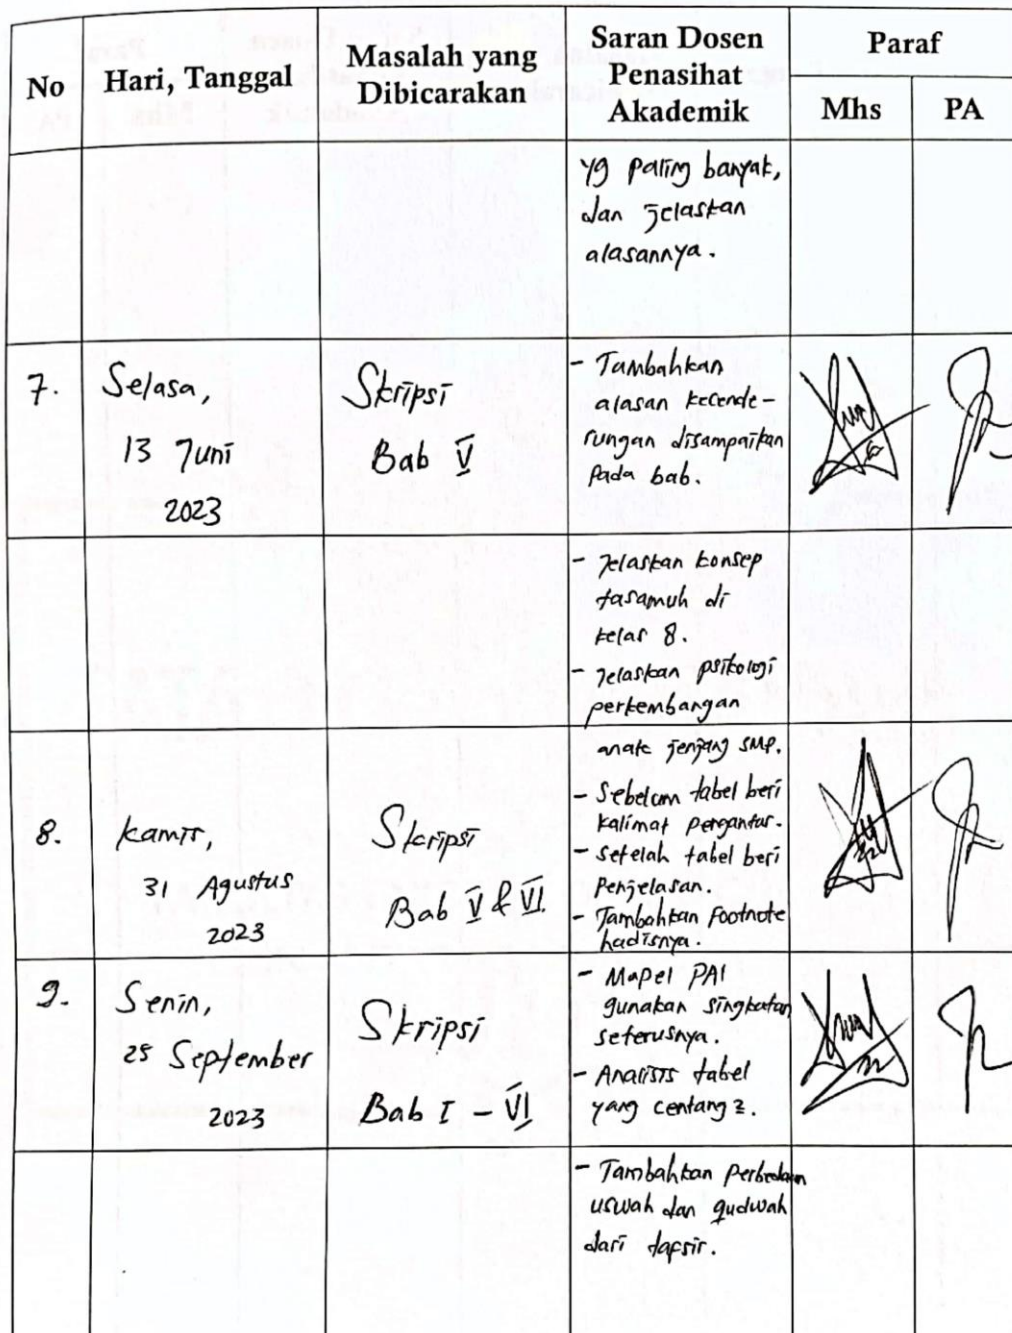 No
Hari, Tanggal
Masalah yang
Dibicarakan
Saran Dosen
Penasihat
Akademik
Paraf
Mhs
PA
yg paling banyak,
dan jelaskan
alasannya.
7.
Selasa,
13 Juni
2023
Skripsi
Bab V
- Tambahkan
alasan kecende-
rungan disampaikan
pada bab.
- Jelaskan konsep
tasamuh di
kelas 8.
- Jelaskan psikologi
perkembangan
anak jenjang SMP.
8.
Kamis,
31 Agustus
2023
Skripsi
Bab V & VI
- Sebelum tabel beri
kalimat pengantar.
- Setelah tabel beri
Penjelasan.
- Tambahkan footnote
hadisnya.
9.
Senin,
25 September
2023
Skripsi
Bab I - VI
- Mapel PAI
gunakan singkatan
seterusnya.
- Analisis tabel
yang centang 2.
- Tambahkan Perbedaan
uswah dan qudwah
dari tafsir.